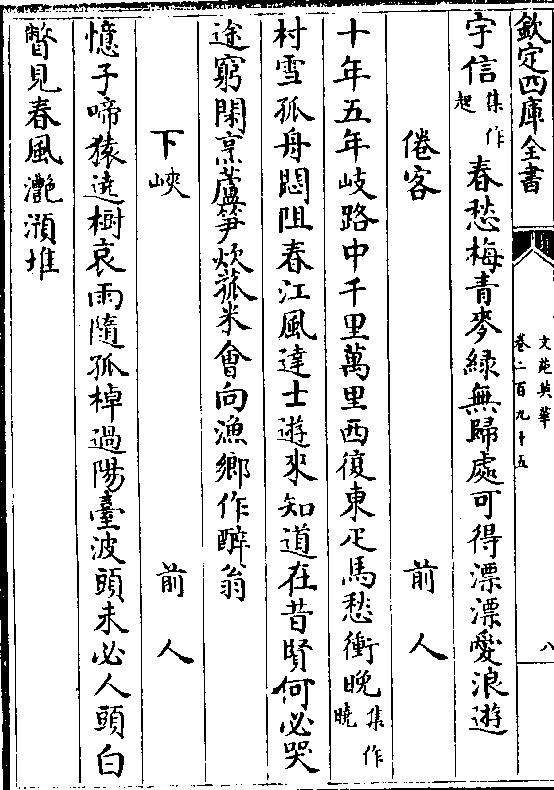 欽定四庫全書
文苑英華
卷二百九十五
八
宇信集作起春愁梅青麥緑無歸處可得漂漂愛浪遊
倦客 前人
十年五年岐路中千里萬里西復東疋馬愁衝晚集作曉
村雪孤舟悶阻春江風達士遊來知道在昔賢何必哭
途窮閑烹蘆筍炊菰米會向漁鄉作醉翁
下峽 前人
憶子啼猿遶樹哀雨隨孤棹過陽臺波頭未必人頭白
瞥見春風灔澦堆